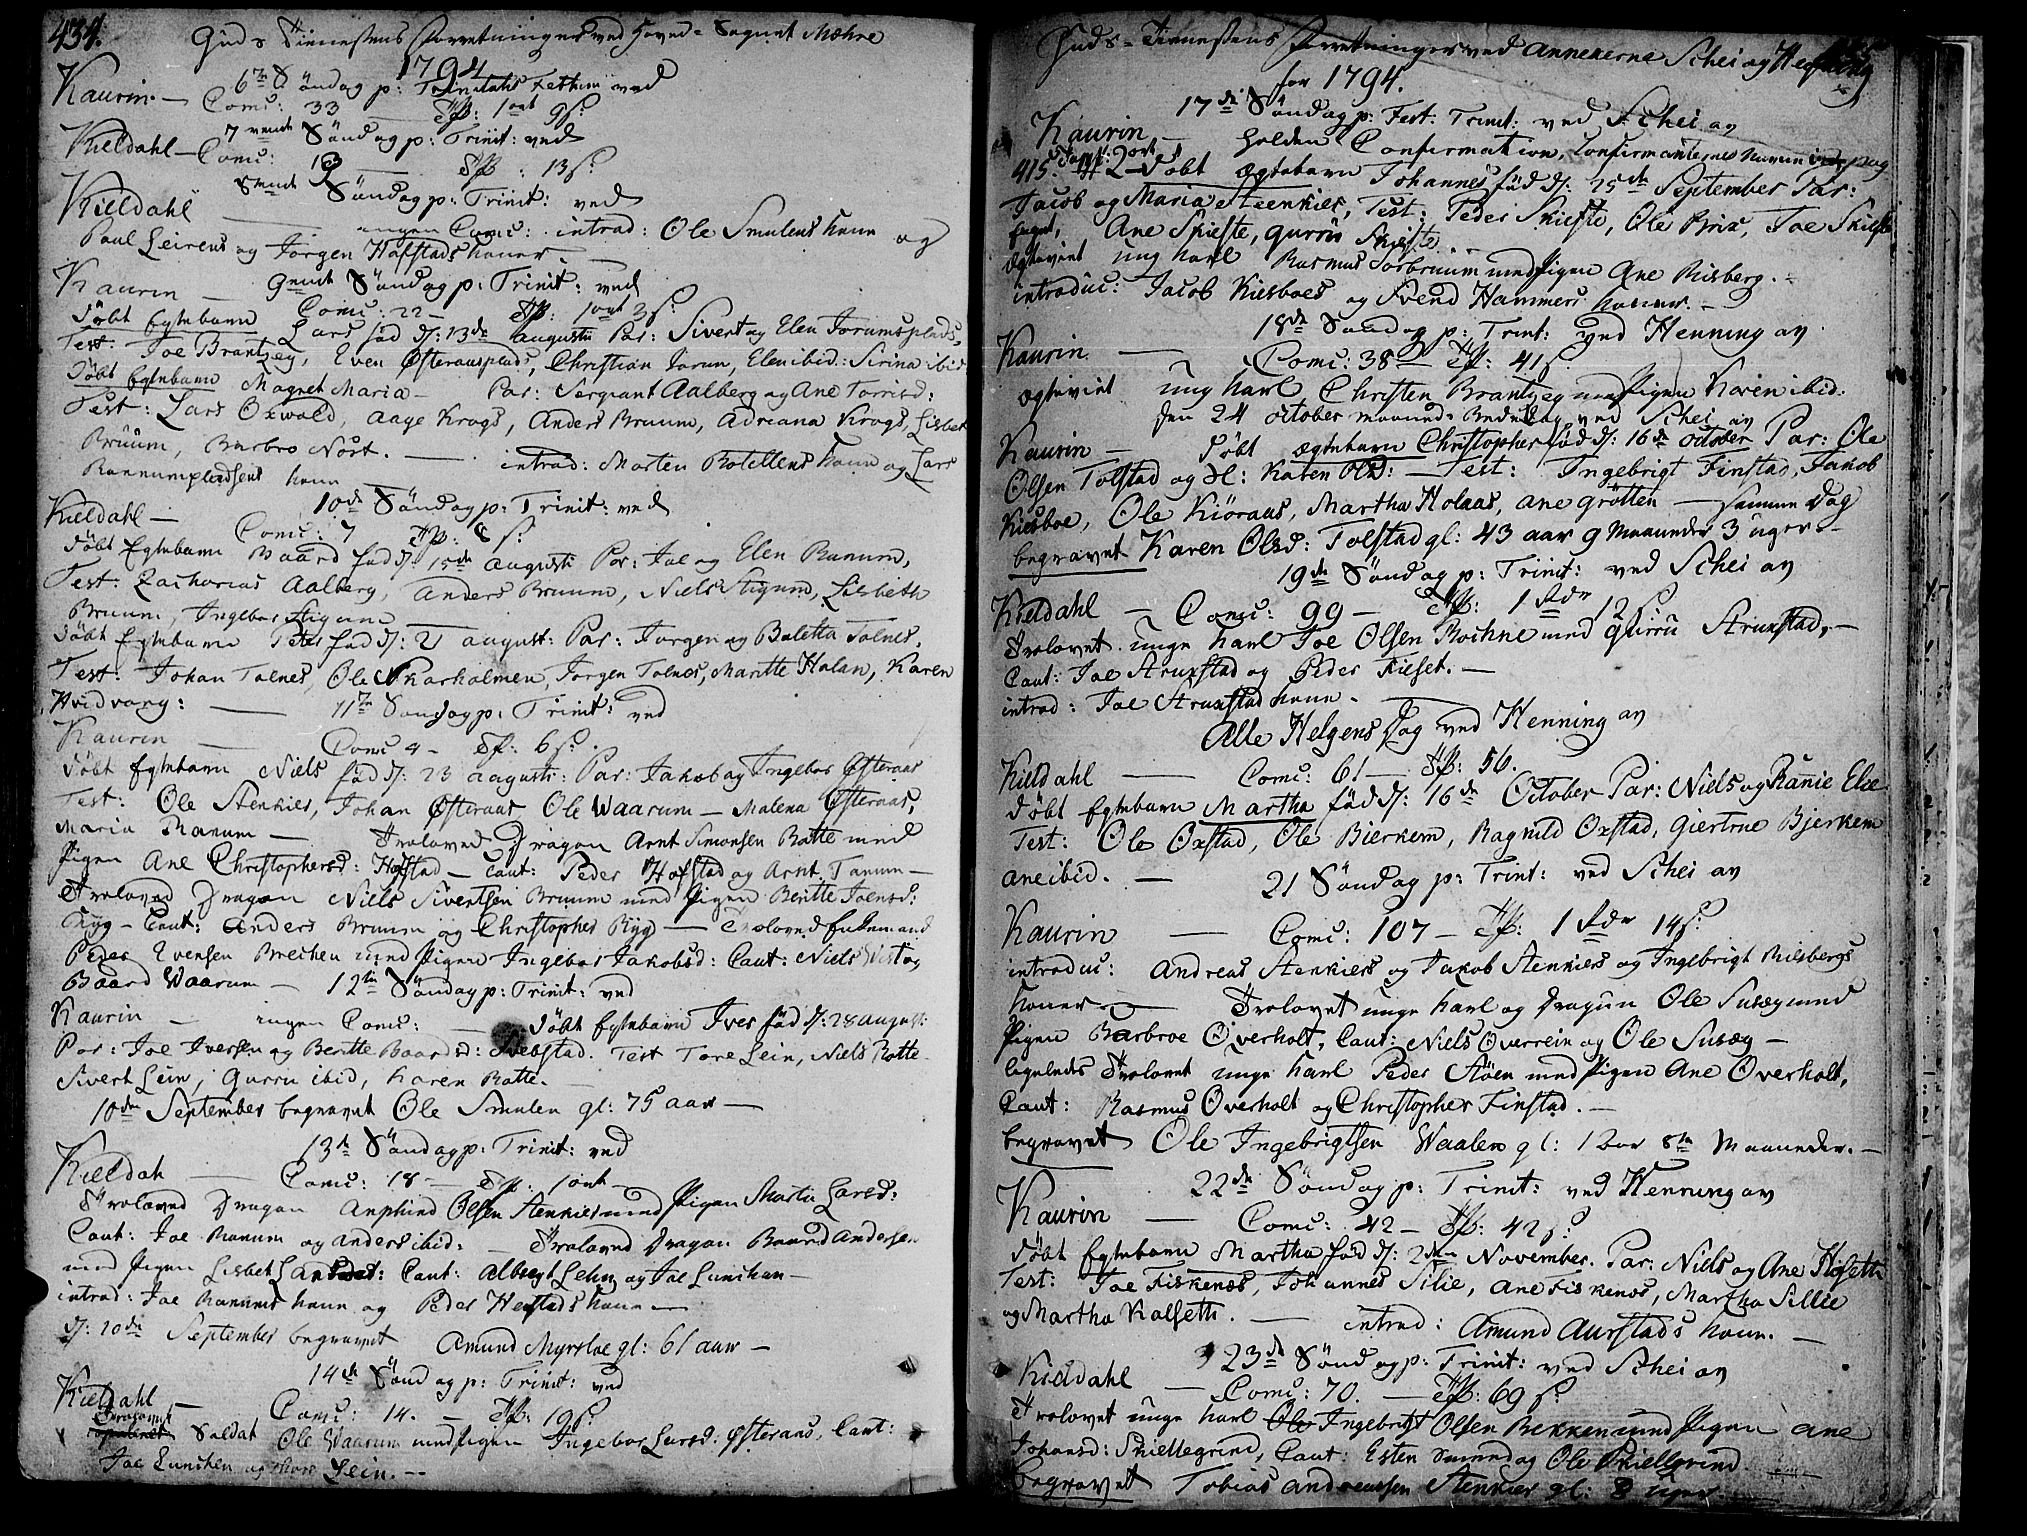 434.
Guds Tienestens Forretninger ved Hoved-Sognet Mæhre
1794
6te Søndag p: Trinitatis Festum ved
Kaurin. — Comu: 33 — Tfl: 1 ort 9 s.
7vende Søndag p: Trinit: ved
Kieldahl — Comu: 13 — Tfl: 13 s.
8vende Søndag p: Trinit: ved
Kieldahl — ingen Comu: introd: Ole Smulens kone og
Paul Leirens og Jørgen Hafstads koner —
Kaurin — 9ende Søndag p: Trinit: ved
Comu: 22 — Tfl: 1 ort 3 s.
Døbt Egtebarn Lars fød d: 13de augusti Par: Sivert og Elen Jorumsplads,
Test: Joe Brantzeg, Even Østeraasplads, Christian Jorum, Elen ibid: Sirina ibid
Døbt Egtebarn Magnet Maria — Par: Sergeant Aalberg og Ane Torrisd:
Test: Lars Oxwold, Aage Krogs, Anders Bruum, Adreana Krogs, Lisbet
Bruum, Barbro Nost. — introd: Morten Rotellens kone og Lars
Rannumpladsens kone
10de Søndag p: Trinit: ved
Kieldahl — Comu: 7 Tfl: 8 s.
Døbt Egtebarn Baard fød d: 15de augusti Par: Joe og Elen Ranum,
Test: Zacharias Aalberg, Anders Bruum, Niels Stigum, Lisbeth
Bruum, Ingebor Stigum
Døbt Egtebarn Peter fød d: 21 august: Par: Jørgen og Boletta Tolnes,
Test: Johan Tolnes, Ole Skarholmen, Jørgen Tolnes, Maritte Holan, Karen
Hvidvang: — 11te Søndag p: Trinit: ved
Kaurin — Comu 4 — Tfl: 6 s.
Døbt Egtebarn Niels fød d: 23 augusti: Par: Jakob og Ingebor Østeraas
Test: Ole Stenkier, Johan Østeraas, Ole Waarum — Malena Østeraas,
Maria Ranum — Trolovede Dragon Arnt Simonsen Rotte med
Pigen Ane Christophersd: Hofstad — Caut: Peder Hofstad og Arnt Tanum —
Trolovede Dragon Niels Sivertsen Bruum med Pigen Beritte Joensd:
Ryg — Caut: Anders Bruum og Christopher Ryg — Trolovede Enkemand
Peder Evensen Brechen med Pigen Ingebor Jakobsd: Caut: Niels Vist og
Baard Waarum — 12te Søndag p: Trinit: ved
Kaurin — ingen Comu: — Døbt Egtebarn Iver fød d: 28 august:
Par: Joe Iversen og Beritte Baardsd: Svebstad. Test Tore Lein, Niels Rotte
Sivert Lein, Gurru ibid, Karen Rotte.
10de September begravet Ole Smulen gl: 75 aar —
13de Søndag p: Trinit: ved
Kieldah — Comu: 18 — Tfl: 1 ort —
Trolovede Dragon Anphind Olsen Stenkier med Pigen Marta Larsd:
Caut: Joe Ranum og Anders ibid: — Trolovede Dragon Baard Andersen
med Pigen Lisbet Larsdat: Caut: Albregt Lehn og Joe Lunchan —
introd: Joe Ranums kone og Peder Hegstads kone —
d: 20de September begravet Amund Myrsloe gl: 61 aar —
14de Søndag p: Trinit: ved
Kieldahl — Comu: 14. — Tfl: 19 s.
Trolovet
Soldat Ole Waarum med Pigen Ingebor Larsd: Østeraas, Caut:
Joe Lunchen og Thore Lein. —
Guds-Tienestens Forretninger ved Annexerne Schei og Henning
for 1794.
17de Søndag p: Fest: Trinit: ved Schei av
Kaurin — holden Confirmation, Confirmanternes Numer
415. Tfl: 2 ort Døbt Egtebarn Johannes fød d: 25de September Par:
Jacob og Maria Steenkier, Test: Peder Skiefte, Ole Brix, Joe Skiefte
Ane Skiefte, Gurru Skiefte. —
Egteviet ung karl Rasmus Torbruum med Pigen Ane Risberg. —
introduc: Jacob Kiesboes og Svend Hammers koner. —
18de Søndag p: Trint: ved Henning av
Kaurin. — Comu: 38 — Tfl: 41 s.
Egteviet ung karl Christen Brantzeg med Pigen Karen ibid:
den 24 october maaneds Bededag ved Schei av
Kaurin — Døbt Egtebarn Christopher fød d: 16de october Par: Ole
Olsen Tolstad og Sl: Karen Olsd: — Test: Ingebrigt Finstad, Jakob
Kiesboe, Ole Kiøraas, Martha Holaas, Ane Grøtten — samme Dag
begravet Karen Olsd: Tolstad gl: 43 aar 9 Maaneder 3 uger —
19de Søndag p: Trinit: ved Schei av
Kieldahl — Comu: 99 — Tfl: 1 Rdr 12 s.
Trolovet unge karl Joe Olsen Rochne med Gurru Aruxstad, —
Caut: Joe Aruxstad og Peder Fieset. —
introd: Joe Aruxstad kone. —
Alle Helgens Dag ved Henning av
Kieldahl — Comu: 61 — Tfl: 56.
Døbt Egtebarn Martha fød d: 16de October Par: Niels og Ranie Elie
Test: Ole Oxstad, Ole Bierkem, Ragnild Oxstad, Giertrue Bjerkem
Ane ibid. — 21 Søndag p: Trint: ved Schei av
Kaurin — Comu: 107 — Tfl: 1 Rdr 14 s.
introduc: Andreas Stenkiers og Jakob Stenkiers og Ingebrigt Risbergs
koner. — Trolovet unge karl og Dragun Ole Susæg med
Pigen Barbroe Overholt, Caut: Niels Overrein og Ole Susæg —
ligeledes Trolovet unge karl Peder Støen med Pigen Ane Overholt,
Caut: Rasmus Overholt og Christopher Finstad. —
begravet Ole Ingebrigtsen Waalen gl: 1 aar 8te Maaneder. —
22de Søndag p: Trinit: ved Henning av
Kaurin — Comu: 42 — Tfl: 42 s.
Døbt Egtebarn Martha fød d: 2den November. Par: Niels og Ane Hofseth
Test: Joe Fiskenæs, Johannes Silie, Ane Fiskenæs, Martha Sillie
og Martha Kalseth. — introd: Amund Aurstads kone. —
23de Søndag p: Trinit: ved Schei av
Kieldahl — Comu: 70. — Tfl: 69 s.
Trolovet unge karl Ole Ingebrigt Olsen Bekken med Pigen Ane
Johansd: Skiellegrind, Caut: Esten Sumnd og Ole Skiellgrind
begravet Tobias Andreassen Stenkier gl: 8 uger